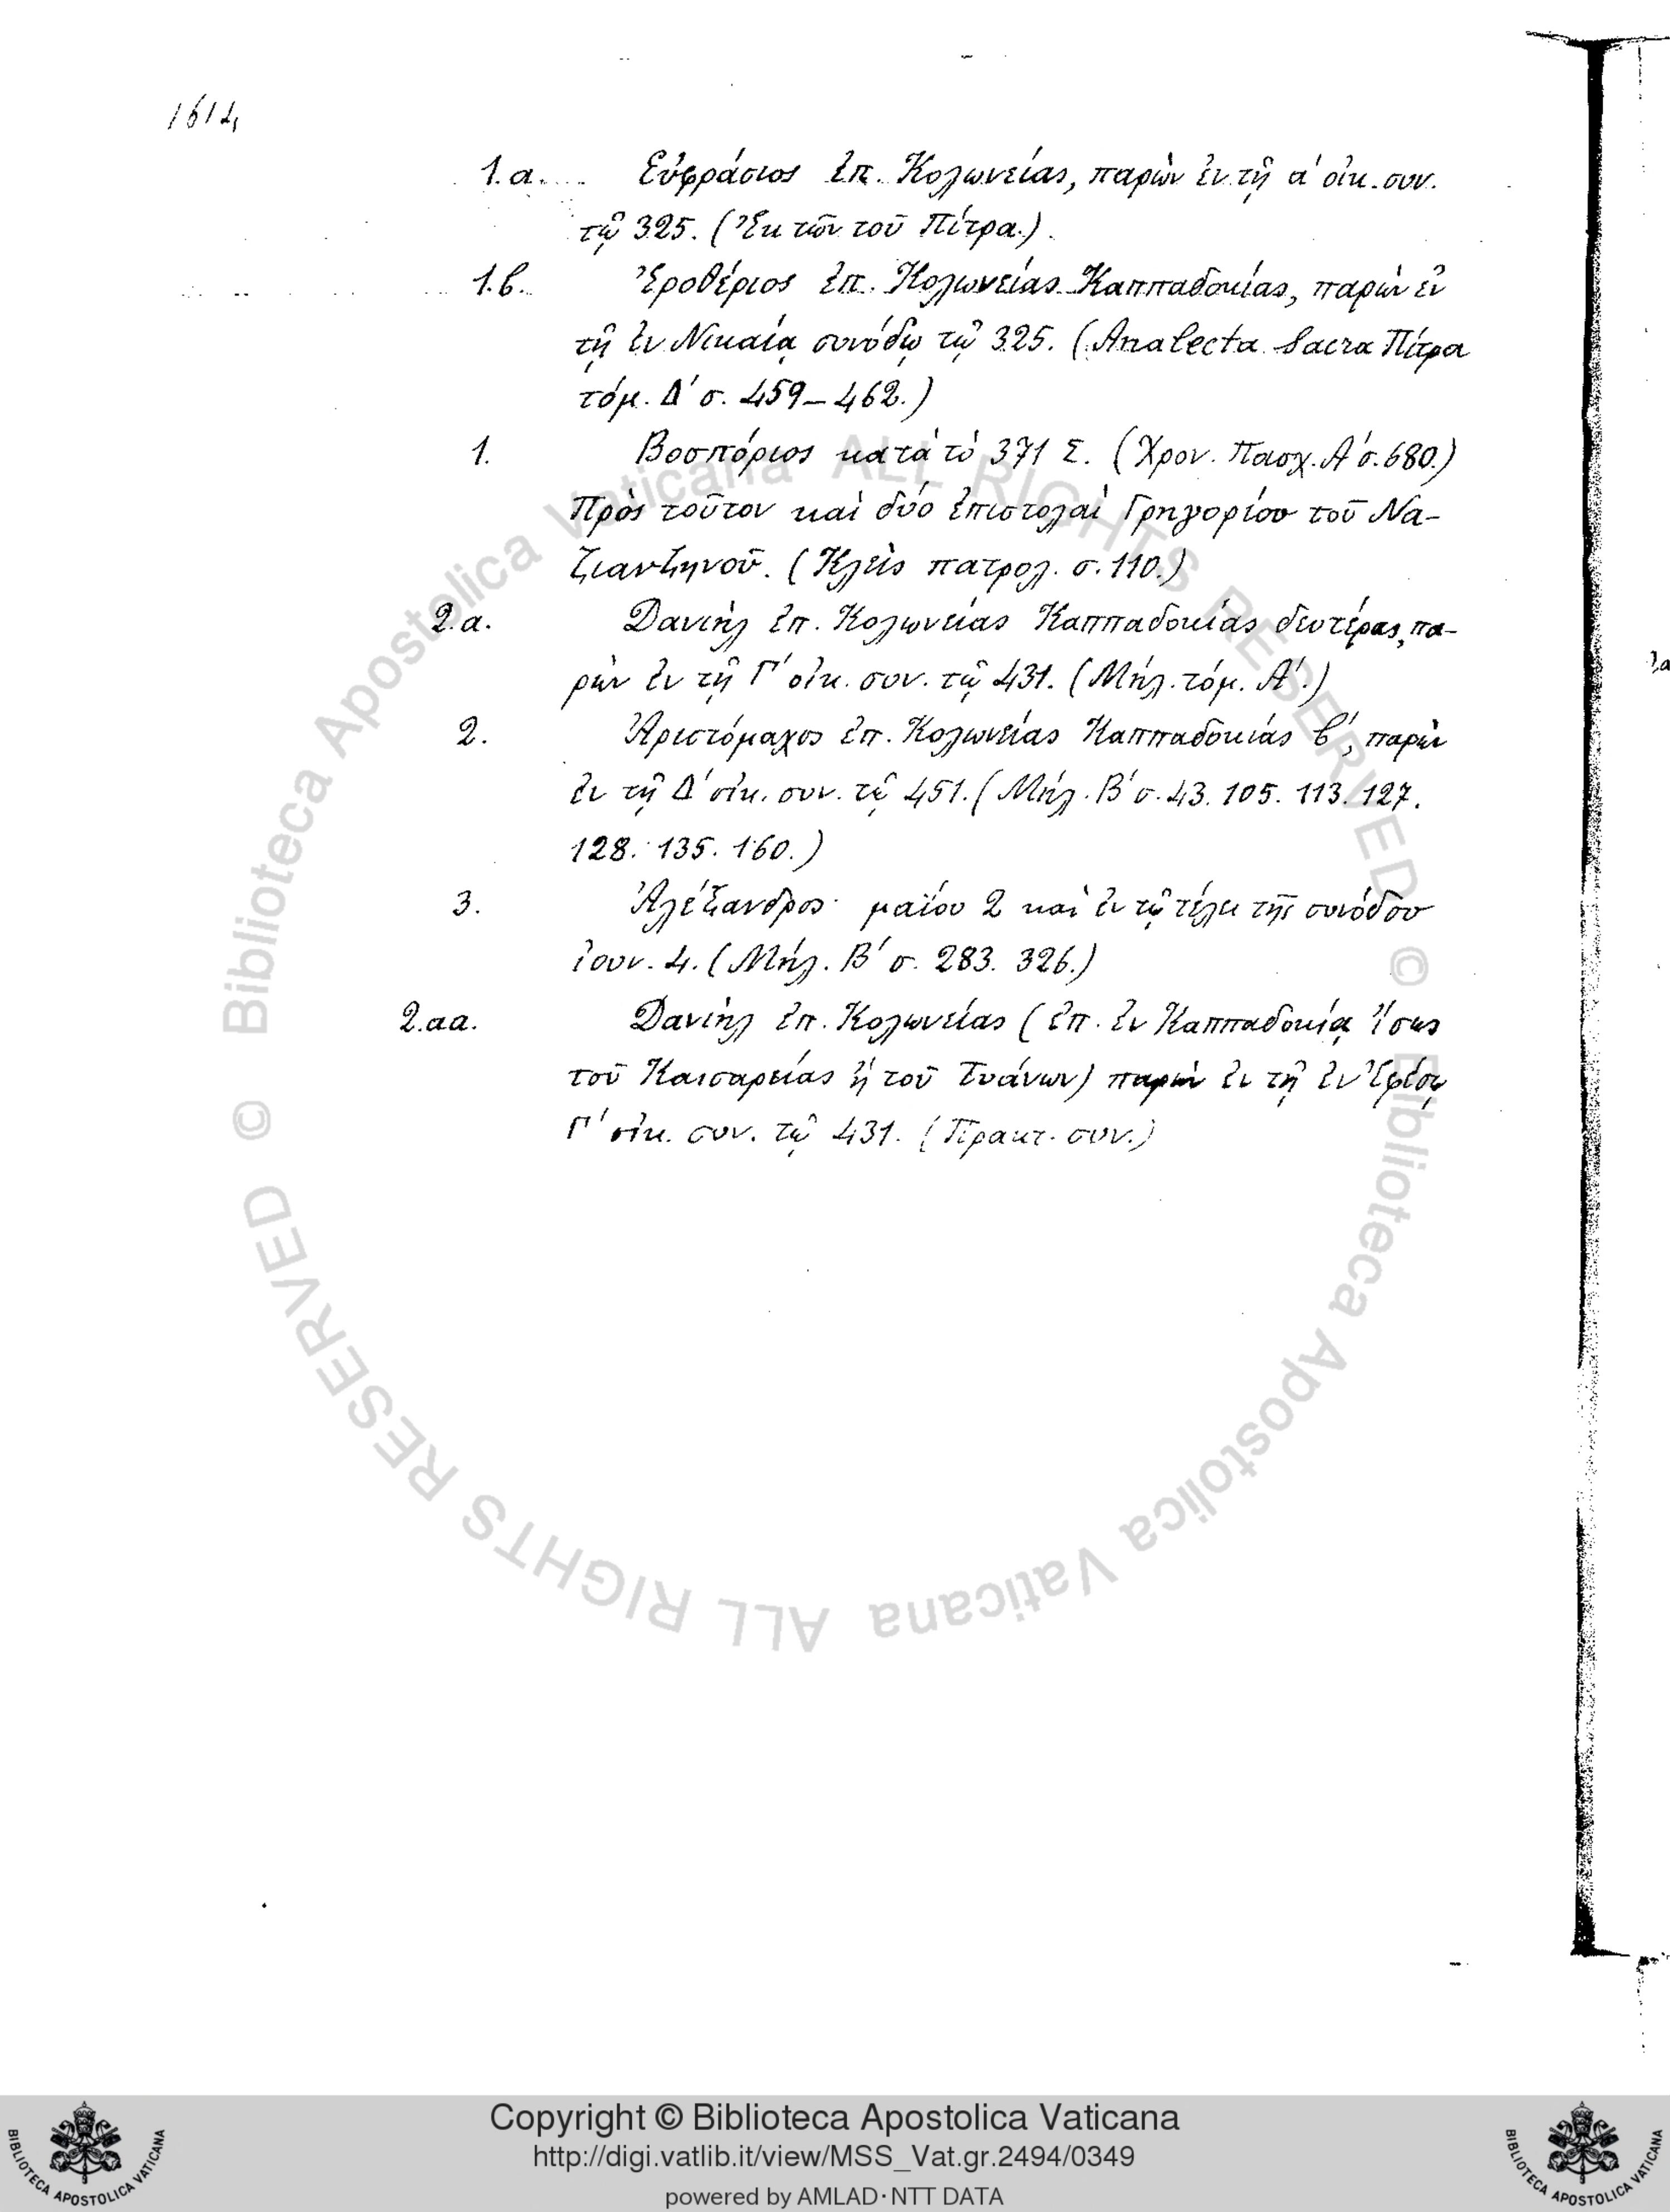 1614
1.α. Εὐφράσιος ἐπ. Κολωνείας, παρὼν ἐν τῇ α΄ οἰκ. συν.
τῷ 325. (Ἐκ τῶν τοῦ Πίτρα.)
1.β. Ἐροθέριος ἐπ. Κολωνείας Καππαδοκίας, παρὼν ἐν
τῇ ἐν Νικαίᾳ συνόδῳ τῷ 325. (Analecta Sacra Πίτρα
τόμ. Δ΄ σ. 459–462.)
1. Βοσπόριος κατὰ τὸ 371 Σ. (Χρον. Πασχ. Α΄ σ. 680.)
Πρὸς τοῦτον καὶ δύο ἐπιστολαὶ Γρηγορίου τοῦ Να-
ζιανζηνοῦ. (Κλεὶς πατρολ. σ. 110.)
2.α. Δανιὴλ ἐπ. Κολωνείας Καππαδοκίας δευτέρας, πα-
ρὼν ἐν τῇ Γ΄ οἰκ. συν. τῷ 431. (Μήλ. τόμ. Α΄.)
2. Ἀριστόμαχος ἐπ. Κολωνείας Καππαδοκίας β΄, παρὼν
ἐν τῇ Δ΄ οἰκ. συν. τῷ 451. (Μήλ. Β΄ σ. 43. 105. 113. 127.
128. 135. 160.)
3. Ἀλέξανδρος· μαΐου 2 καὶ ἐν τῷ τέλει τῆς συνόδου
ἰουν. 4. (Μήλ. Β΄ σ. 283. 326.)
2.αα. Δανιὴλ ἐπ. Κολωνείας (ἐπ. ἐν Καππαδοκίᾳ ἴσως
τοῦ Καισαρείας ἢ τοῦ Τυάνων) παρὼν ἐν τῇ ἐν Ἐφέσῳ
Γ΄ οἰκ. συν. τῷ 431. (Πρακτ. συν.)
© Biblioteca Apostolica Vaticana ALL RIGHTS RESERVED © Biblioteca Apostolica Vaticana ALL RIGHTS RESERVED
Copyright © Biblioteca Apostolica Vaticana
http://digi.vatlib.it/view/MSS_Vat.gr.2494/0349
powered by AMLAD·NTT DATA
BIBLIOTECA APOSTOLICA VATICANA
BIBLIOTECA APOSTOLICA VATICANA